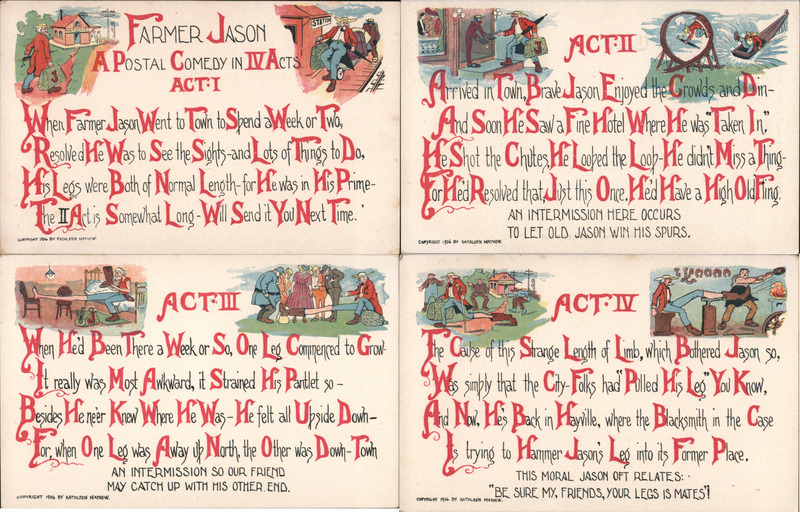 STATION
FARMER JASON
A POSTAL COMEDY IN IV ACTS.
ACT·I
When Farmer Jason Went to Town to Spend a Week or Two,
Resolved He Was to See the Sights–and Lots of Things to Do,
His Legs were Both of Normal Length–for He was in His Prime–
The II Act is Somewhat Long–Will Send it You Next Time.
COPYRIGHT 1906 BY KATHLEEN MATHEW.
ACT·II
Arrived in Town, Brave Jason Enjoyed the Crowds and Din–
And Soon He Saw a Fine Hotel Where He was "Taken In,"
He Shot the Chutes, He Looped the Loop–He didn't Miss a Thing–
For He'd Resolved that, Just this Once, He'd Have a High Old Fling.
AN INTERMISSION HERE OCCURS
TO LET OLD JASON WIN HIS SPURS.
COPYRIGHT 1906 BY KATHLEEN MATHEW.
ACT·III
When He'd Been There a Week or So, One Leg Commenced to Grow–
It really was Most Awkward, it Strained His Pantlet so–
Besides He ne'er Knew Where He Was–He felt all Upside Down–
For, when One Leg was Away up North, the Other was Down-Town
AN INTERMISSION SO OUR FRIEND
MAY CATCH UP WITH HIS OTHER END.
COPYRIGHT 1906 BY KATHLEEN MATHEW.
ACT·IV
The Cause of this Strange Length of Limb, which Bothered Jason so,
Was simply that the City-Folks had "Pulled His Leg" You Know,
And Now, He's Back in Hayville, where the Blacksmith in the Case
Is trying to Hammer Jason's Leg into its Former Place.
THIS MORAL JASON OFT RELATES:·
"BE SURE MY, FRIENDS, YOUR LEGS IS MATES"!
COPYRIGHT 1906 BY KATHLEEN MATHEW.